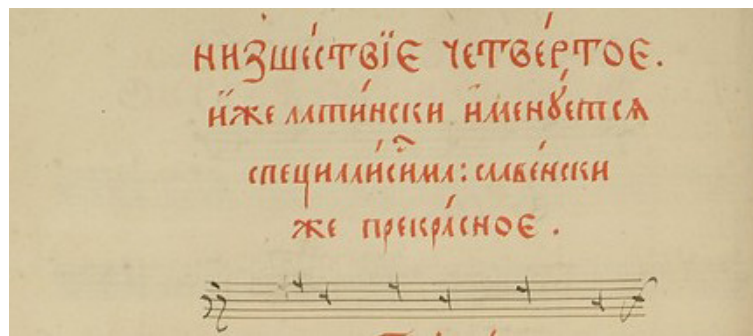 низше́ствїе четве́ртое.
и́же лати́нски и҆менꙋ́етсѧ
специали́сима: славе́нски
же прекра́сное.